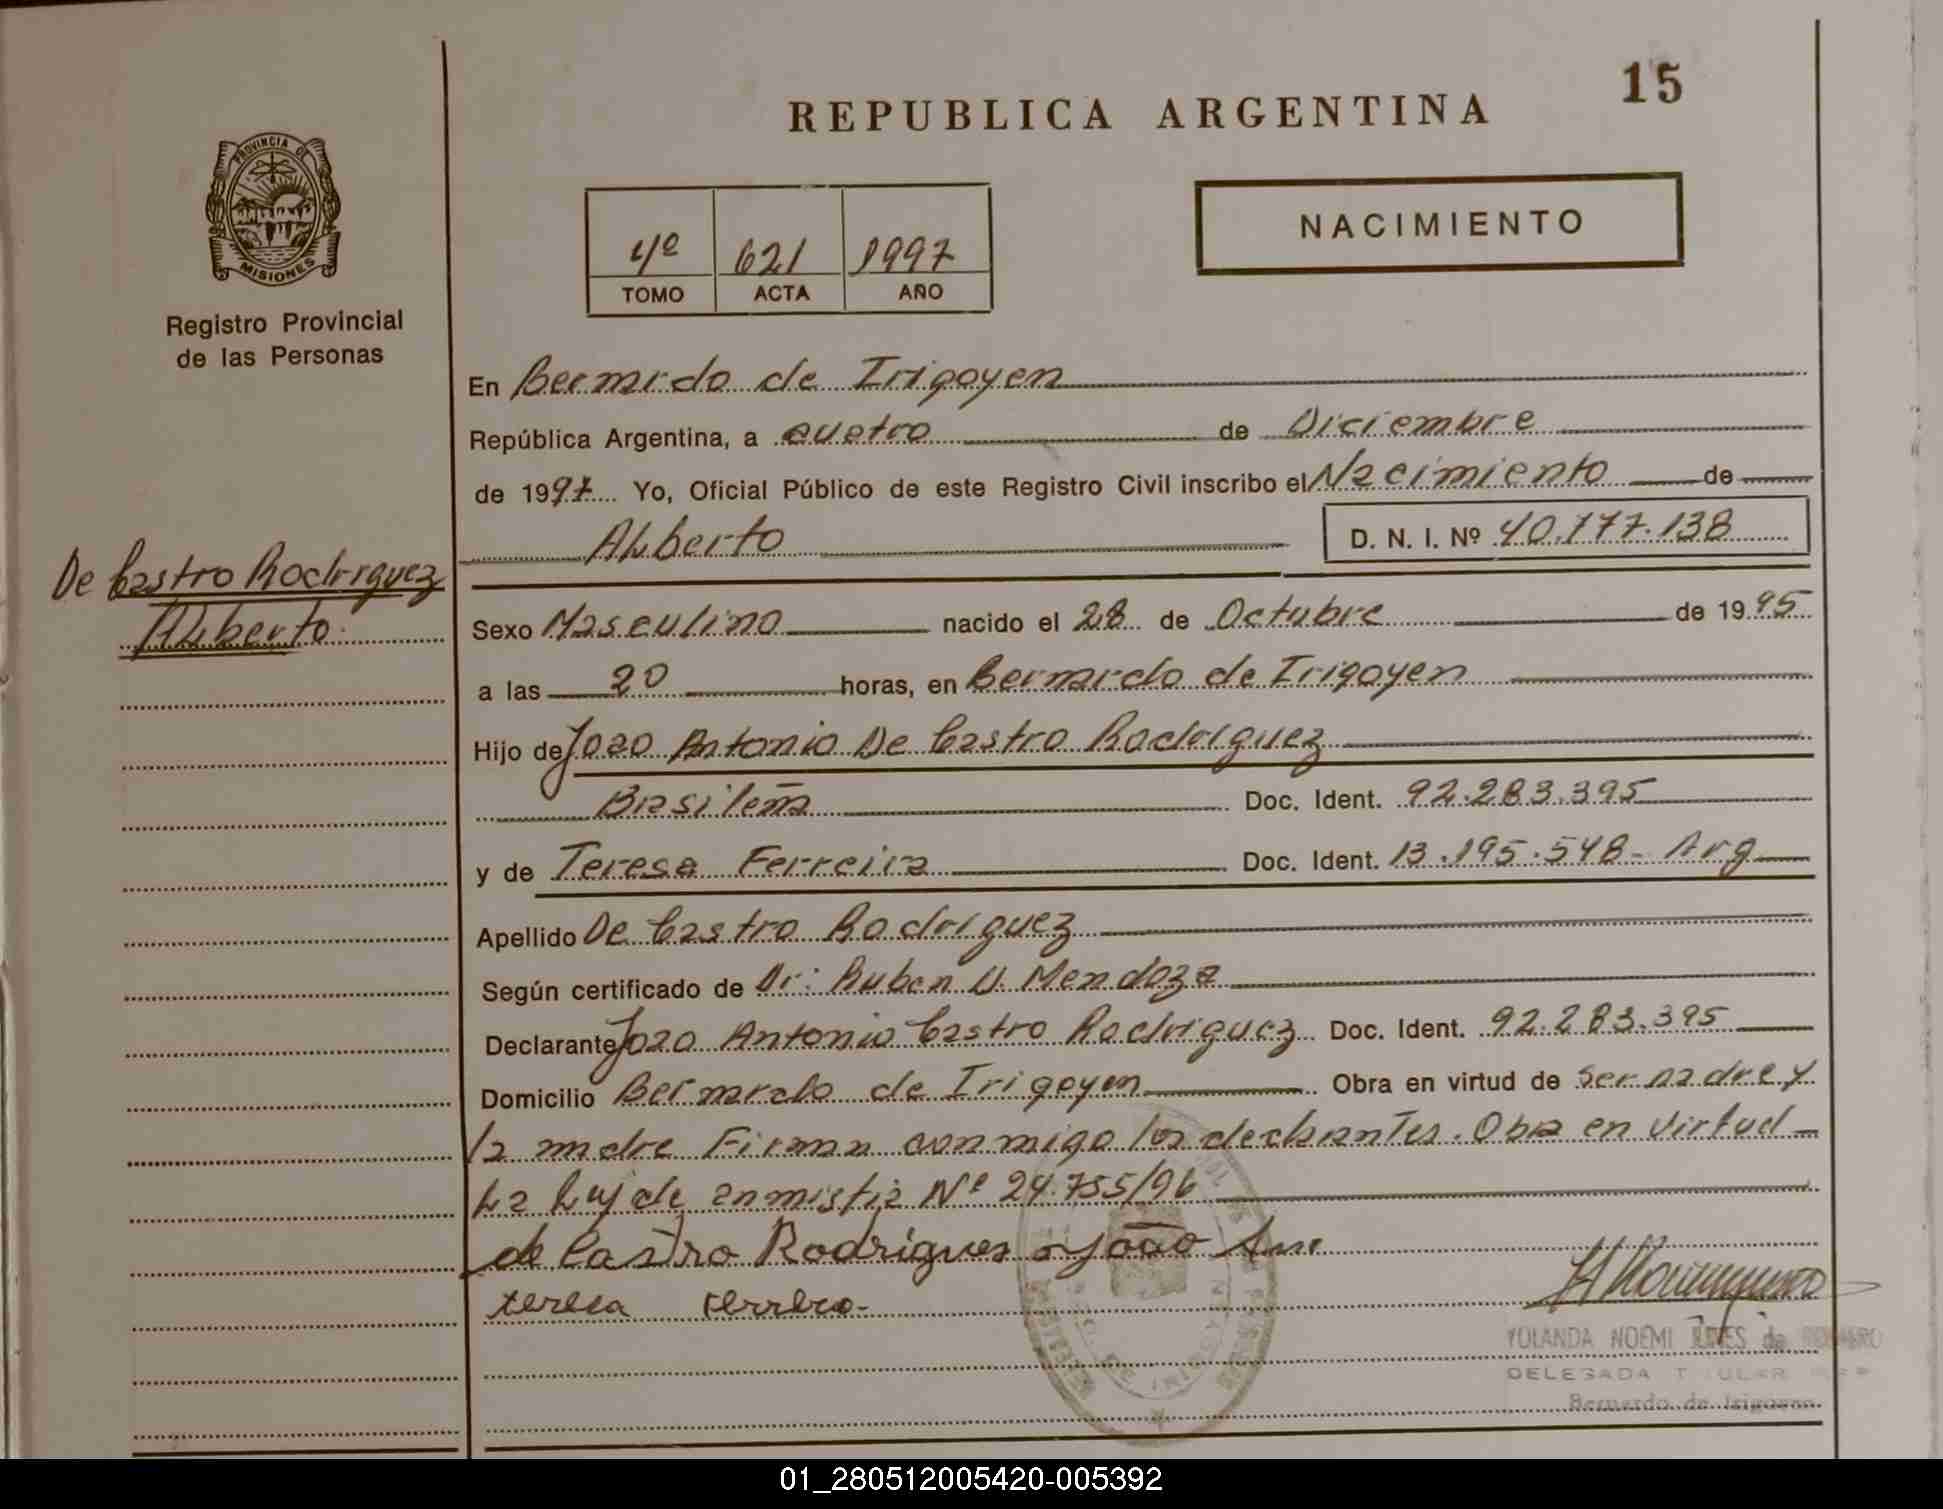 15
REPUBLICA ARGENTINA
PROVINCIA DE
MISIONES
Registro Provincial
de las Personas
4º 621 1997
TOMO ACTA AÑO
NACIMIENTO
En Bernardo de Irigoyen
República Argentina, a cuatro de Diciembre
de 1997 Yo, Oficial Público de este Registro Civil inscribo el Nacimiento de
Alberto D. N. I. Nº 40.177.138
De Castro Rodriguez
Alberto.
Sexo Masculino nacido el 28 de Octubre de 1995
a las 20 horas, en Bernardo de Irigoyen
Hijo de Joao Antonio De Castro Rodriguez
Brasileña Doc. Ident. 92.283.395
y de Teresa Ferreira Doc. Ident. 13.195.548- Arg
Apellido De Castro Rodriguez
Según certificado de Dr: Ruben D. Mendoza
Declarante Joao Antonio Castro Rodriguez Doc. Ident. 92.283.395
Domicilio Bernardo de Irigoyen Obra en virtud de ser padre y
la madre Firman conmigo los declarantes. Obra en virtud
La Ley de amnistia Nº 24.755/96
de Castro Rodrigues João
teresa
YOLANDA NOEMI de
DELEGADA TITULAR
Bernardo de Irigoyen
01_280512005420-005392